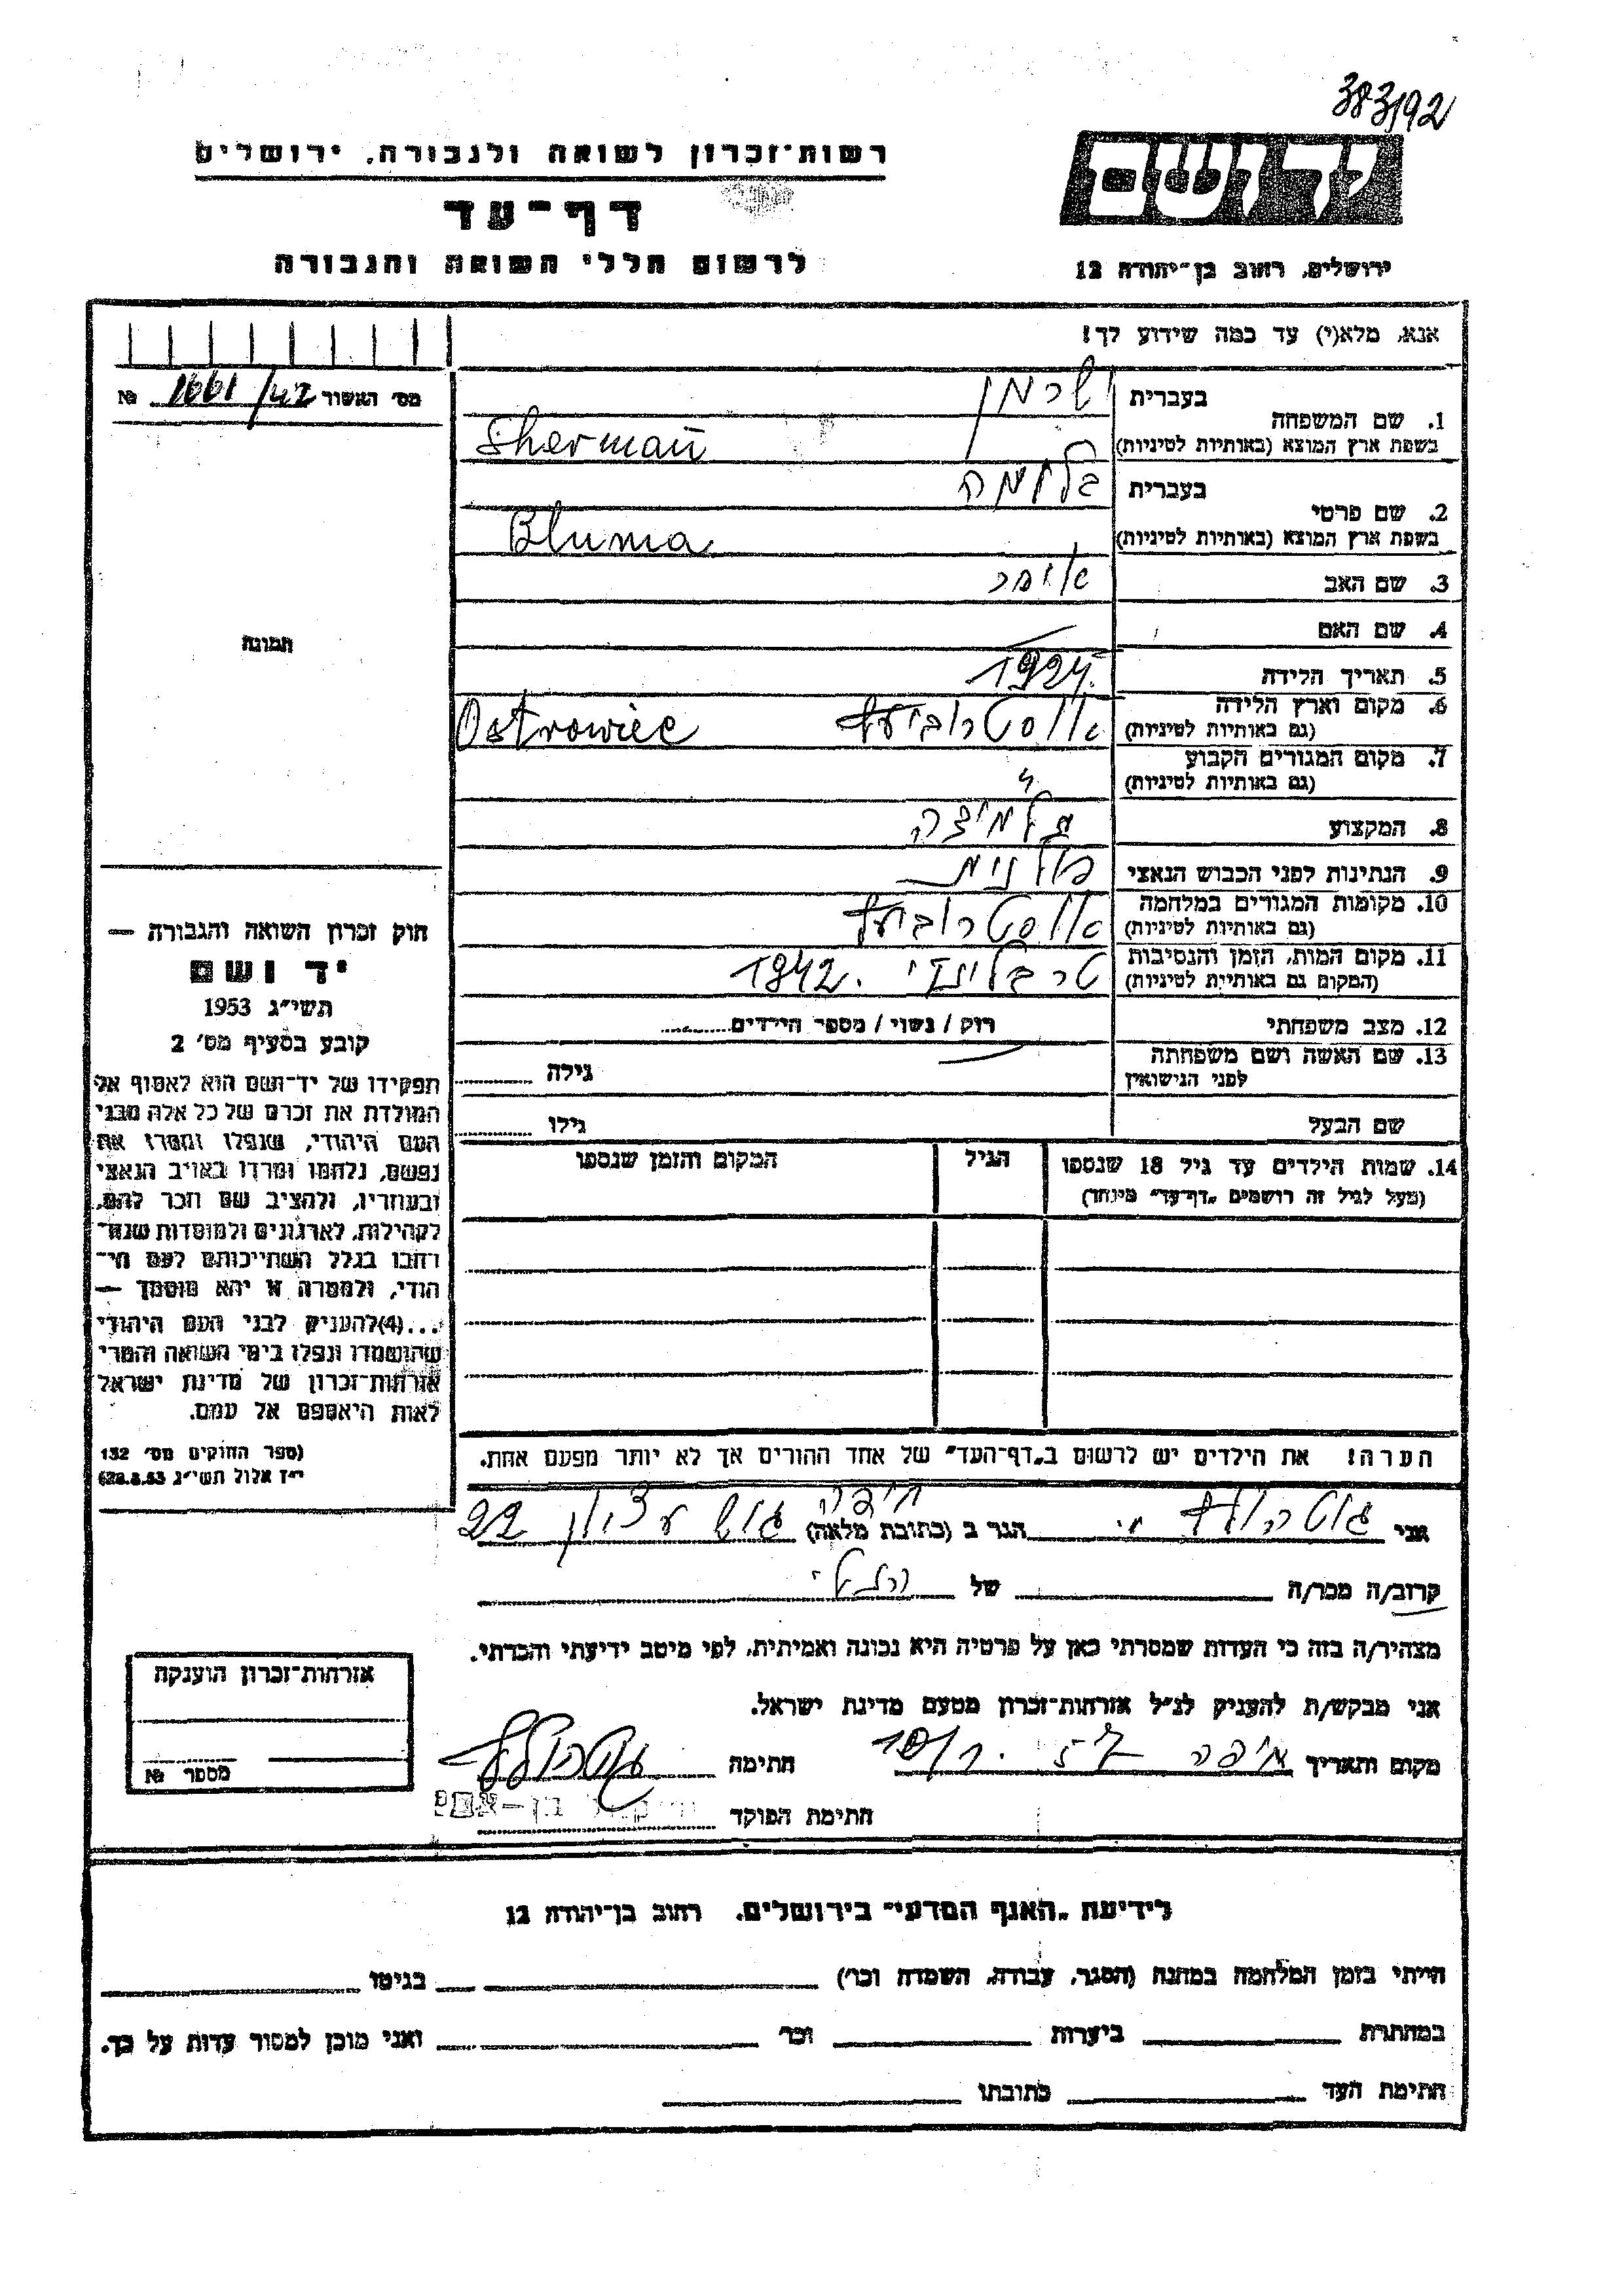 383/92
רשות־זכרון לשואה ולגבורה, ירושלים
יד ושם
דף־עד
לרשום חללי השואה והגבורה
ירושלים, רחוב בן־יהודה 12
אנא, מלא(י) עד כמה שידוע לך!
מס׳ האשור 1661/42 №
1. שם המשפחה בעברית שרמן
בשפת ארץ המוצא (באותיות לטיניות) Sherman
2. שם פרטי בעברית בלומה
בשפת ארץ המוצא (באותיות לטיניות) Bluma
3. שם האב
4. שם האם —
5. תאריך הלידה 1924
6. מקום וארץ הלידה אוסטרוביעץ Ostrowiec
(גם באותיות לטיניות)
7. מקום המגורים הקבוע "
(גם באותיות לטיניות)
8. המקצוע תלמידה
9. הנתינות לפני הכבוש הנאצי פולנית
10. מקומות המגורים במלחמה אוסטרוביעץ
(גם באותיות לטיניות)
11. מקום המות, הזמן והנסיבות טרבלינקי. 1942
(המקום גם באותיות לטיניות)
12. מצב משפחתי רוק / נשוי / מספר הילדים
13. שם האשה ושם משפחתה לפני הנישואין — גילה
שם הבעל גילו
14. שמות הילדים עד גיל 18 שנספו הגיל המקום והזמן שנספו
(מעל לגיל זה רושמים „דף־עד״ מיוחד)
הערה! את הילדים יש לרשום ב„דף־העד״ של אחד ההורים אך לא יותר מפעם אחת.
תמונה
חוק זכרון השואה והגבורה —
יד ושם
תשי״ג 1953
קובע בסעיף מס׳ 2
תפקידו של יד־ושם הוא לאסוף אל
המולדת את זכרם של כל אלה מבני
העם היהודי, שנפלו ומסרו את
נפשם, נלחמו ומרדו באויב הנאצי
ובעוזריו, ולהציב שם וזכר להם,
לקהילות, לארגונים ולמוסדות שנח־
רבו בגלל השתייכותם לעם הי־
הודי, ולמטרה זו יהא מוסמך —
...(4) להעניק לבני העם היהודי
שהושמדו ונפלו בימי השואה והמרי
אזרחות־זכרון של מדינת ישראל
לאות היאספם אל עמם.
(ספר החוקים מס׳ 132
י״ז אלול תשי״ג 28.8.53)
אני גוטהולץ הגר ב (כתובת מלאה) חיפה גוש עציון 22
קרוב/ה מכר/ה של
מצהיר/ה בזה כי העדות שמסרתי כאן על פרטיה היא נכונה ואמיתית, לפי מיטב ידיעתי והכרתי.
אני מבקש/ת להעניק לנ״ל אזרחות־זכרון מטעם מדינת ישראל.
מקום ותאריך חיפה חתימה
חתימת הפוקד
אזרחות־זכרון הוענקה
מספר №
לידיעת „האגף המדעי״ בירושלים, רחוב בן־יהודה 12
הייתי בזמן המלחמה במחנה (הסגר, עבודה, השמדה וכו׳) בגיטו
במחתרת ביערות וכו׳ ואני מוכן למסור עדות על כך.
חתימת העד כתובתו